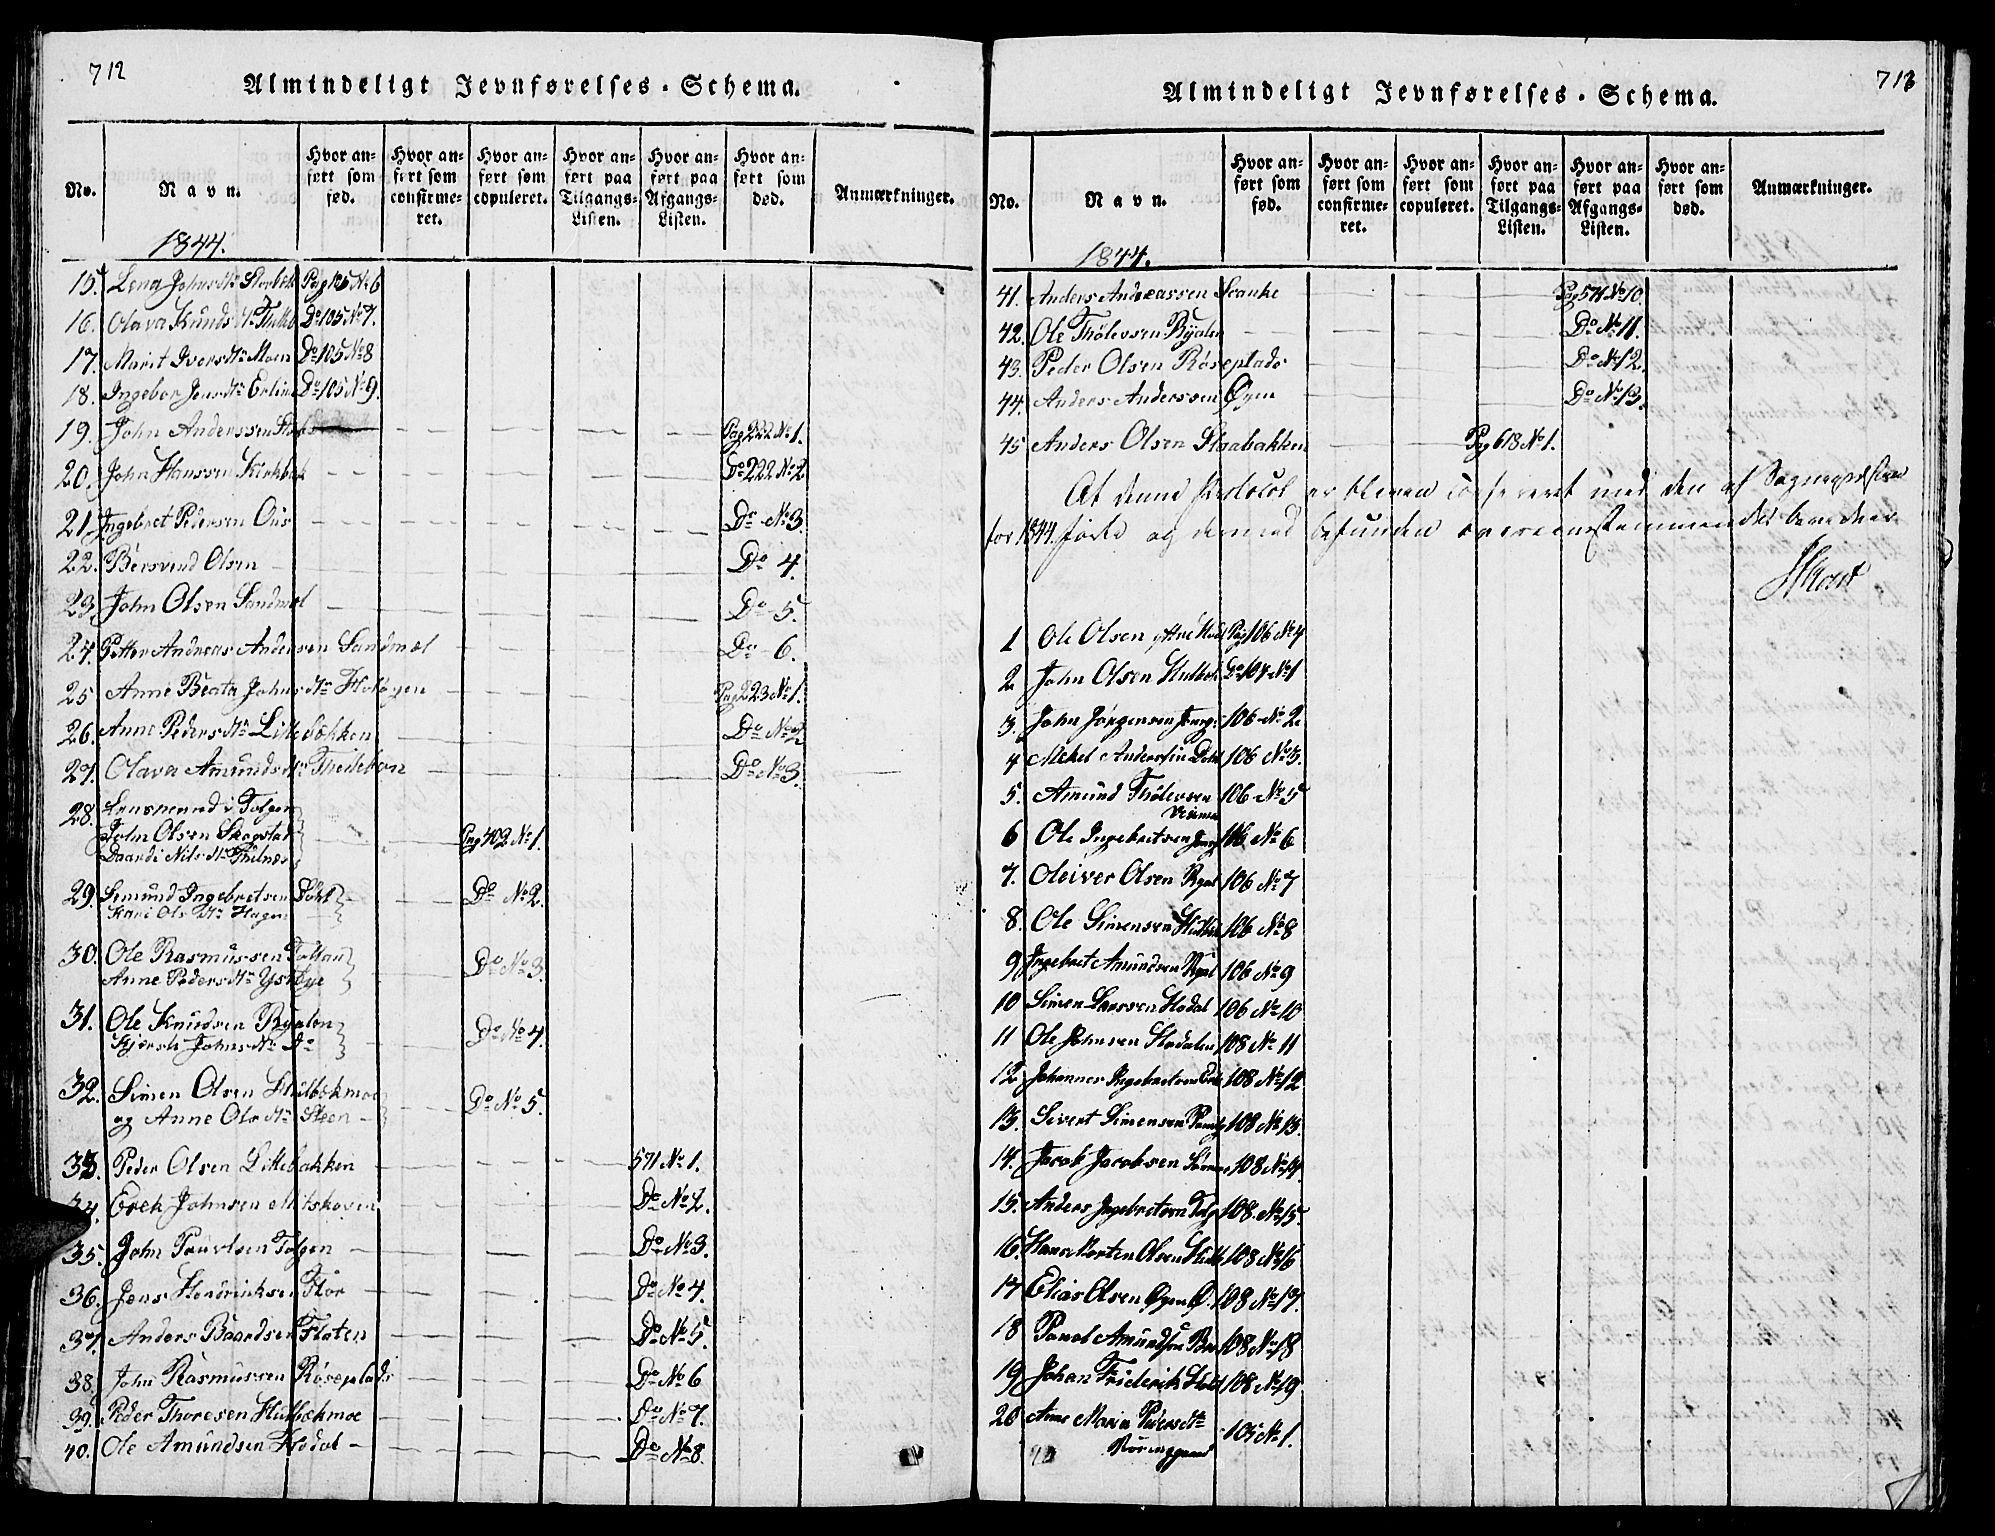 712
Almindeligt Jevnførelses-Schema.
No.
Navn.
Hvor anført som fød.
Hvor anført som confirmeret.
Hvor anført som copuleret.
Hvor anført paa Tilgangs-Listen.
Hvor anført paa Afgangs-Listen.
Hvor anført som død.
Anmærkninger.
1844.
15. Lena Johnsdtr Pag 105 No 6
16. Olava Knudsdtr Do 105 No 7.
17. Marit Iversdtr Moen Do 105 No 8
18. Ingebor Jensdtr Do 105 No 9.
19. John Anderssen Pag 222 No 1.
20. John Hanssen Do 222 No 2
21. Ingebret Pedersen Ous Do No 3.
22. Bersvend Olsen Do 4.
23. John Olsen Sandmæl Do 5.
24. Petter Andreas Andersen Sandmæl Do 6.
25 Anne Beata Johnsdtr Holøyen Pag 223 No 1.
26. Anne Pedersdtr Lillebakken Do No 2
27. Olava Amundsdtr Do No 3.
28. Lensmand i Tolgen
John Olsen Skogstad Pag 402 No 1.
Nilsdtr
29. Simund Ingebretsen Do No 2.
Kari Olsdtr Hagen
30. Ole Rasmussen Do No 3
Anne Pedersdtr
31. Ole Knudsen Ryalen Do No 4.
Johnsdtr Do
32. Simen Olsen Hulbækmoe Do No 5.
og Anne Olsdtr Steen
33 Peder Olsen Lillebakken 571 No 1.
34. Erek Johnsen Do No 2.
35. John Paavelsen Tolgen Do No 3.
36. Jens Hendriksen Do No 4.
37. Anders Baardsen Floten Do No 5.
38. John Rasmussen Røseplads Do No 6
39. Peder Thoresen Hulbækmoe Do No 7.
40. Ole Amundsen Hodal Do No 8.
Almindeligt Jevnførelses-Schema.
713
No.
Navn.
Hvor anført som fød.
Hvor anført som confirmeret.
Hvor anført som copuleret.
Hvor anført paa Tilgangs-Listen.
Hvor anført paa Afgangs-Listen.
Hvor anført som død.
Anmærkninger.
1844.
41. Anders Andreassen Svanke Pag 571 No 10.
42. Ole Thølevsen Ryalen Do No 11.
43. Peder Olsen Røseplads Do No 12.
44. Anders Anderssen Øyen Do No 13.
45 Anders Olsen Staabakken Pag 618 No 1.
At denne Protocol er bleven confereret med den af Sognepræsten
for 1844 førte og dermed befunden overeensstemmende bevidner
1 Ole Olsen Pag 106 No 4
2 John Olsen Do 104 No 1
3. John Jørgensen 106 No 2.
4 Mekel Anderssen 106 No 3.
5. Amund Thølevsen 106 No 5
6 Ole Ingebretsen 106 No 6
7. Oleiver Olsen Ryal 106 No 7
8. Ole Simensen 106 No 8
9 Ingebret Amundsen Ryal 106 No 9
10 Simen Larssen Hodal 106 No 10
11 Ole Johnsen Hodalen 108 No 11
12 Johannes Ingebretsen 108 No 12.
13. Sivert Simensen 108 No 13.
14. Jacob Jacobsen 108 No 14
15. Anders Ingebretsen Tolg 108 No 15.
16. Hans Morten Olsen 108 No 16
17 Elias Olsen Øyen 108 No 17.
18 Povel Amundsen 108 No 18
19 Johan Friderik 108 No 19
20 Anne Maria Pedersdtr 105 No 1.